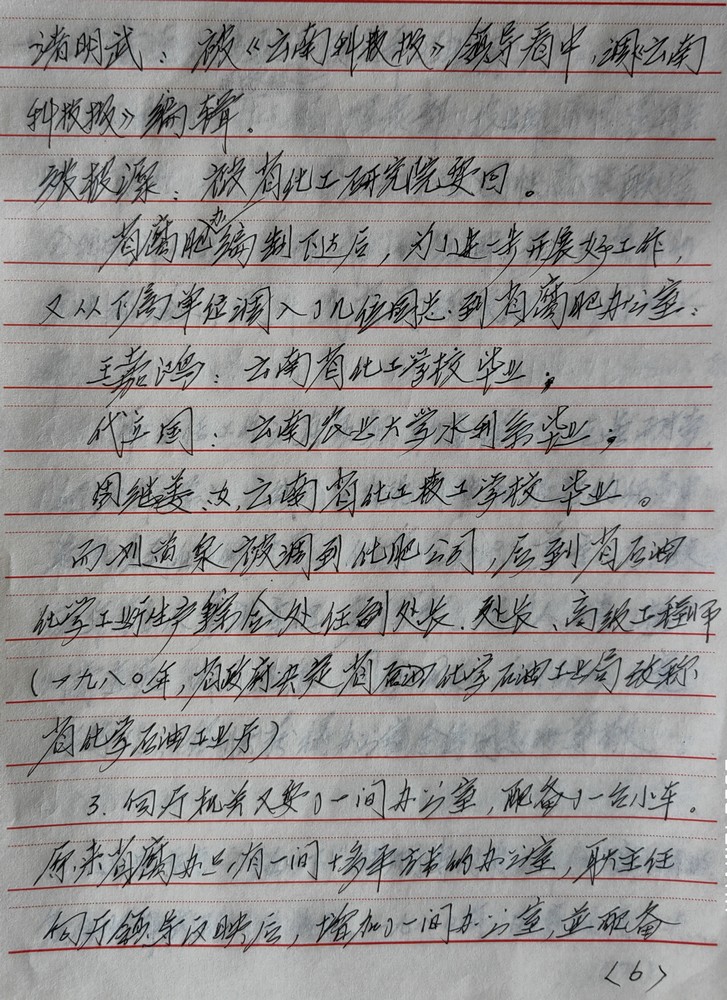 诸明武：被《云南科技报》领导看中，调《云南
科技报》编辑。
：被省化工研究院要回。
省腐肥办编制下达后，为了进一步开展好工作，
又从下属单位调入了几位同志到省腐肥办公室：
王嘉鸿：云南省化工学校毕业；
代立国：云南农业大学水利系毕业；
周继姜，女，云南省化工技工学校毕业。
而刘道泉被调到化肥公司，后到省石油
化学工业厅生产综合处任副处长、处长、高级工程师
（一九八〇年，省政府决定省化学石油工业局改称
省化学石油工业厅）
3. 向厅机关又要了一间办公室，配备了一台小车。
原来省腐办只有一间十多平方米的办公室，耿主任
向厅领导反映后，增加了一间办公室，並配备
〈6〉